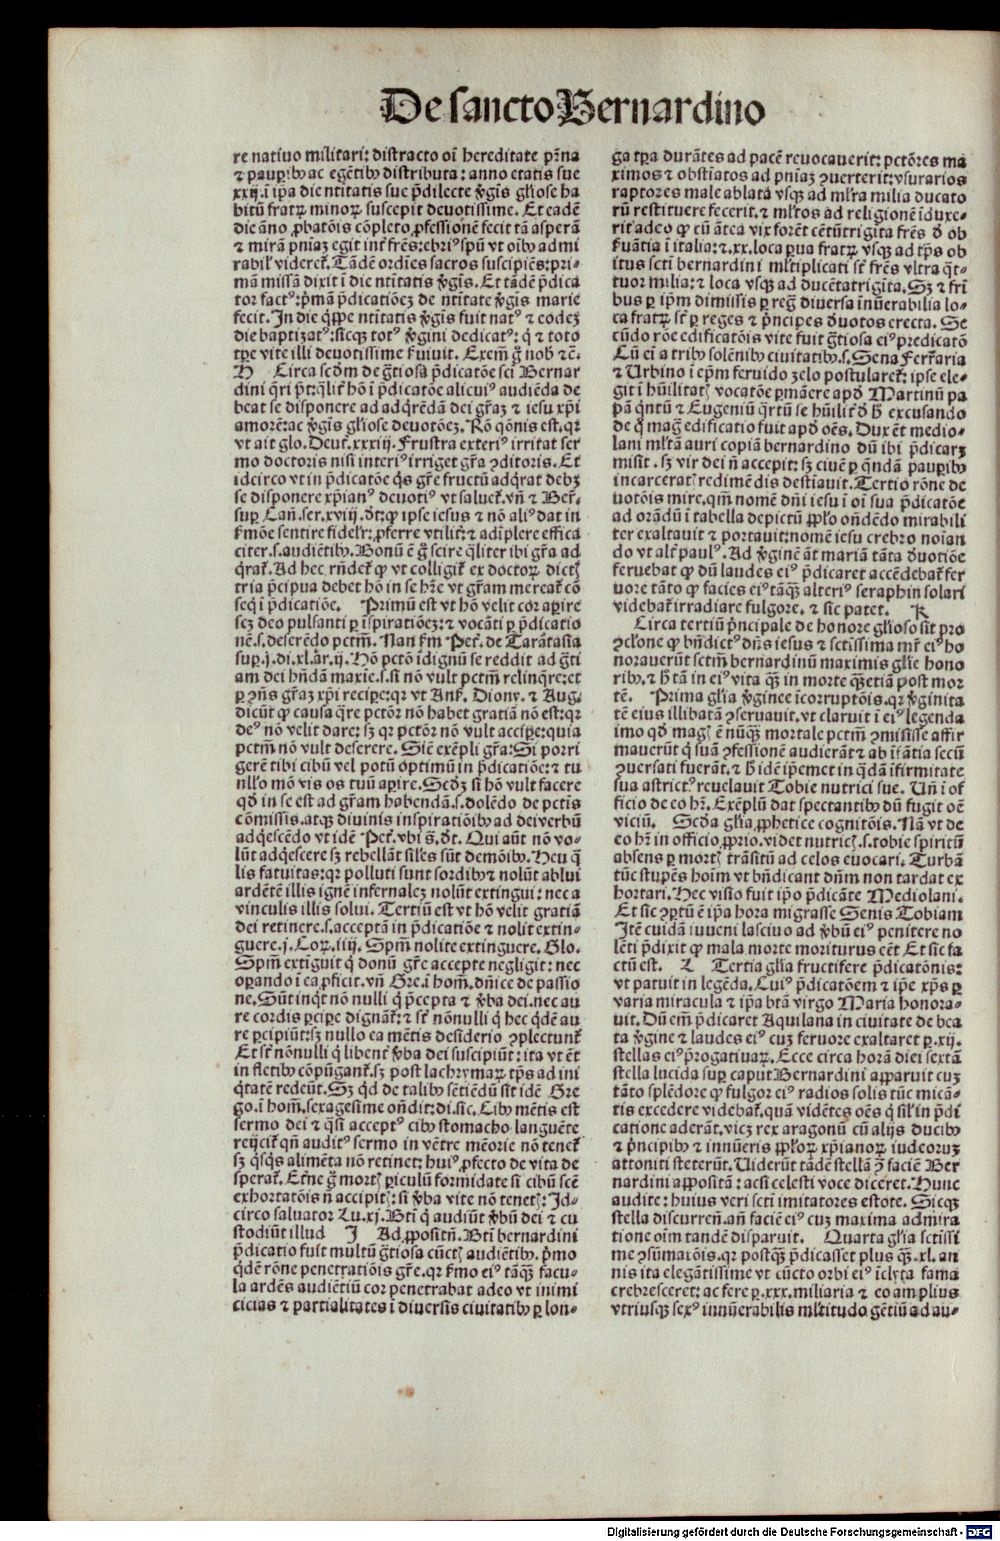 De sancto Bernardino
re natiuo militari: distracto oı̃ hereditate pr̃na
⁊ paupibꝰ ac egẽtibꝰ distributa: anno etatis sue
xxij. ĩ ipã die ntitatis sue p̃dilecte v̾gĩs gl̃iose ha
bitũ fratꝝ minoꝝ suscepit deuotissime. Et eadẽ
die ãno ꝓbatõis cõpleto ꝓfessionẽ fecit tã asperã
⁊ mirã pniaz egit int̾ frẽs: ebriꝰ spũ vt oĩbꝰ admi
rabil̾ videret̾. Tãdẽ ordĩes sacros suscipiẽs: pri-
mã missã dixit ĩ die ntitatis v̾gĩs. Et tãdẽ p̃dica
tor factꝰ: p̃mã p̃dicatiõez de ntitate v̾gĩs marie
fecit. In die q̃ppe ntitatis v̾gĩs fuit natꝰ ⁊ eodez
die baptizatꝰ: sicqꝫ totꝰ v̾gini dedicatꝰ: q̃ ⁊ toto
tꝑe vite illi deuotissime s̾uiuit. Exem̃ g̃ nob̾ ⁊c̃.
H Circa scd̾m de g̃tiosa p̃dicatõe sci Bernar
dini q̃ri pt̾: q̃lit̾ hõ ĩ p̃dicatõe alicuiꝰ audiẽda de
beat se disponere ad adq̃rẽdã dei gr̃az ⁊ iesu xp̃i
amorẽ: ac v̾gĩs gl̃iose deuotõez. Rõ q̃onis est. qꝛ
vt ait glo. Deut̾. xxxij. Frustra exteriꝰ irritat ser
mo doctoris nisi interiꝰ irriget gr̃a ꝯditoris. Et
idcirco vt in p̃dicatõe q̃s gr̃e fructũ adq̃rat debꝫ
se disponere xp̃ianꝰ deuotiꝰ vt saluet̾. vñ ⁊ Ber̃.
sup Cañ. ser. xviij. d̾t: ꝙ ipse iesus ⁊ nõ aliꝰ dat in
s̾mõe sentire fidel̾r: ꝓferre vtilit̾: ⁊ adĩplere effica
citer. s. audiẽtibꝰ. Bonũ ẽ g̃ scire q̃liter ibi gr̃a ad
q̃rat̾. Ad hec rñdet̾ ꝙ vt colligit̾ ex doctoꝝ dictꝭ
tria p̃cipua debet hõ in se hr̃e vt gr̃am mereat̾ cõ
seq̃ ĩ p̃dicatiõe. Primũ est vt hõ velit cor aꝑire
scꝫ deo pulsanti ꝑ ĩspiratiõez: ⁊ vocãti ꝑ p̃dicatio
nẽ. s. deserẽdo pctm̃. Nan s̾m Pet̾. de Tarãtasia
sup. j. di. xl. ar̃. ij. Hõ pctõ ĩdignũ se reddit ad g̃ti
am dei hñdam maxĩe. s. si nõ vult pctm̃ relinq̃re: et
ꝑ ꝯñs gr̃az xp̃i reciꝑe: qꝛ vt Ans̃. Diony. ⁊ Aug.
dicũt ꝙ causa q̃re pctõr nõ habet gratiã nõ est: qꝛ
deꝰ nõ velit dare: sꝫ qꝛ pctõr nõ vult acciꝑe: quia
pctm̃ nõ vult deserere. Sic̃ exẽpli gr̃a: Si porri
gerẽt tibi cibũ vel potũ optimũ in p̃dicatiõe: ⁊ tu
nll̾o mõ vis os tuũ aꝑire. Scd̾ꝫ si hõ vult facere
qd̾ in se est ad gr̃am habendã. s. dolẽdo de pctĩs
cõmissis. atqꝫ diuinis inspiratiõibꝰ ad dei verbũ
adq̃escẽdo vt idẽ Pet̾. vbi s̃. d̾t. Qui aũt nõ vo-
lũt adq̃escere sꝫ rebellãt sil̾es sũt demõibꝰ. Heu q̃
lis fatuitas: qꝛ polluti sunt sordibꝰ ⁊ nolũt ablui
ardẽtẽ illis ignẽ infernalez nolũt extingui: nec a
vinculis illis solui. Tertiũ est vt hõ velit gratiã
dei retinere. s. acceptã in p̃dicatiõe ⁊ nolit extin-
guere. j. Coꝝ. iiij. Spm̃ nolite extinguere. Glo.
Spm̃ extĩguit q̃ donũ gr̃e accepte negligit: nec
oꝑando ĩ ea ꝓficit. vñ Gre. ĩ hom̃. dñice de passio
ne. Sũt inq̃t nõ nulli q̃ p̃cepta ⁊ v̾ba dei. nec au
re cordis ꝑciꝑe dignãt̾: ⁊ st̾ nõnulli q̃ hec q̃dẽ au
re ꝑcipiũt: sꝫ nullo ea mẽtis desiderio ꝯplectunt̾
Et st̾ nõnulli q̃ libent̾ v̾ba dei suscipiũt: ita vt ẽt
in fletibꝰ cõpũgant̾. sꝫ post lachrymaꝝ tp̃s ad ini
q̃tatẽ redeũt. Sꝫ q̃d de talibꝰ sẽtiẽdũ sit idẽ Gre
go. ĩ hom̃. sexagesime oñdit: di. sic. Cibꝰ mẽtis est
sermo dei ⁊ q̃si acceptꝰ cibꝰ stomacho languẽte
reijcit̾ qñ auditꝰ sermo in vẽtre mẽorie nõ tenet̾
sꝫ q̃sq̃s alimẽta nõ retinet: huiꝰ ꝓfecto de vita de
sperat̾. Et̾ne g̃ mortꝭ ꝑiculũ formidate si cibũ scẽ
exhortatõis ñ accipitꝭ: si v̾ba vite nõ tenetꝭ: Id-
circo saluator Lu. xj. Btĩ q̃ audiũt v̾bũ dei ⁊ cu
stodiũt illud J Ad ꝓpositũ. Btĩ bernardini
p̃dicatio fuit multũ g̃tiosa cũctꝭ audiẽtibꝰ. p̃mo
q̃dẽ rõne penetratiõis gr̃e. qꝛ s̾mo eiꝰ tãqꝫ facu-
la ardẽs audiẽtiũ cor penetrabat adeo vt inimi
cicias ⁊ partialitates ĩ diuersis ciuitatibꝰ ꝑ lon-
ga tp̃a durãtes ad pacẽ reuocauerit: pctõres ma
ximos ⁊ obstĩatos ad pniaꝫ ꝯuerterit: vsurarios
raptores male ablata vsqꝫ ad ml̾ta milia ducato
rũ restituere fecerit. ⁊ ml̾tos ad religionẽ ĩduxe-
rit adeo ꝙ cũ ãtea vix forẽt cẽtũtrigĩta frẽs d̾ ob
s̾uãtia ĩ italia: ⁊. xx. loca ꝑua fratꝝ vsqꝫ ad tp̃s ob
itus sctĩ bernardini ml̾tiplicati st̾ frẽs vltra q̃t-
tuor milia: ⁊ loca vsqꝫ ad ducẽtatrigĩta. Sꝫ ⁊ fr̃i
bus ꝑ ip̃m dimissis ꝑ reg̃ diuersa ĩnũerabilia lo-
ca fratꝝ st̾ ꝑ reges ⁊ p̃ncipes d̾uotos erecta. Se
cũdo rõe edificatõis vite fuit g̃tiosa eiꝰ predicatõ
Cũ eĩ a tribꝰ solẽnibꝰ ciuitatibꝰ. s. Sena Ferr̃aria
⁊ Urbino ĩ ep̃m feruido zelo postularet̾: ipse ele-
git ĩ hũilitatꝭ vocatõe ꝑmãere apd̾ Martinũ pa
pã q̃ntũ ⁊ Eugeniũ q̃rtũ se hũilit̾ d̾ h̾ excusando
de q̃ mag̃ edificatio fuit apd̾ oẽs. Dux ẽt medio-
lani ml̾tã auri copiã bernardino dũ ibi p̃dicarꝫ
misit. sꝫ vir dei ñ accepit: sꝫ ciuẽ ꝑ q̃ndã pauꝑibꝰ
incarceratꝭ redimẽdis destĩauit. Tertio rõne de
uotõis mire. qm̃ nomẽ dñi iesu ĩ oĩ sua p̃dicatõe
ad orãdũ ĩ tabella depictũ ppl̾o oñdẽdo mirabili
ter exaltauit ⁊ portauit: nomẽ iesu crebro noĩan
do vt alt̾ paulꝰ. Ad v̾ginẽ ãt mariã tãta d̾uotiõe
feruebat ꝙ dũ laudes eiꝰ p̃dicaret accẽdebat̾ fer
uore tãto ꝙ facies eiꝰ tãqꝫ alteriꝰ seraphin solari
videbat̾ irradiare fulgore. ⁊ sic patet. K
Circa tertiũ p̃ncipale de honore gl̃ioso sit pro
ꝯclõne ꝙ bñdictꝰ dñs iesus ⁊ sctissima mr̃ eiꝰ ho
norauerũt sctm̃ bernardinũ maximis gl̃ie hono
ribꝰ. ⁊ h̾ tã in eiꝰ vita q̃ꝫ in morte q̃ꝫ etiã post mor
tẽ. Prima gl̃ia v̾ginee ĩcorruptõis. qꝛ v̾ginita
tẽ eius illibatã ꝯseruauit. vt claruit ĩ eiꝰ legenda
imo qd̾ magꝭ ẽ nũqꝫ mortale pctm̃ ꝯmisisse affir
mauerũt q̃ suã ꝯfessionẽ audierãt ⁊ ab ĩfãtia secũ
ꝯuersati fuerãt. ⁊ h̾ idẽ ip̃emet in q̃dã ĩfirmitate
sua astrictꝰ reuelauit Tobie nutrici sue. Uñ ĩ of
ficio de eo hr̃. Exẽplũ dat spectantibꝰ dũ fugit oẽ
viciũ. Scd̾a gl̃ia ꝓphetice cognitõis. Nã vt de
eo hr̃ in officio ꝓprio. videt nutricꝭ. s. tobie spiritũ
absens ꝑ mortꝭ trãsitũ ad celos euocari. Turbã
tũc stupẽs hoĩm vt bñdicant dñm non tardat ex
hortari. Hec visio fuit ip̃o p̃dicãte Mediolani.
Et sic ꝯptũ ẽ ip̃a hora migrasse Senis Tobiam
Itẽ cuidã iuueni lasciuo ad v̾bũ eiꝰ penitere no
lẽti p̃dixit ꝙ mala morte moriturus eẽt Et sic fa
ctũ est. L Tertia gl̃ia fructifere p̃dicatõnis:
vt patuit in legẽda. Cuiꝰ p̃dicatõem ⁊ ip̃e xp̃s ꝑ
varia miracula ⁊ ip̃a btã virgo Maria honora-
uit. Dũ em̃ p̃dicaret Aquilana in ciuitate de bea
ta v̾gine ⁊ laudes eiꝰ cuꝫ feruore exaltaret ꝑ. xij.
stellas eiꝰ p̃rogatiuaꝝ. Ecce circa horã diei sextã
stella lucida sup caput Bernardini apparuit cuꝫ
tãto splẽdore ꝙ fulgor eiꝰ radios solis tũc micã-
tis excedere videbat̾. quã vidẽtes oẽs q̃ sil̾ in p̃di
catione aderãt. vicꝫ rex aragonũ cũ alijs ducibꝰ
⁊ p̃ncipibꝰ ⁊ innũeris ppl̾oꝝ xp̃ianoꝝ iudeoruꝫ
attoniti steterũt. Uiderũt tãdẽ stellã ꝯ̃ faciẽ Ber
nardini appositã: acsi celesti voce diceret. Hunc
audite: huius veri sctĩ imitatores estote. Sicqꝫ
stella discurreñ. añ faciẽ eiꝰ cuꝫ maxima admira
tione oĩm tandẽ disparuit. Quarta gl̃ia sctissi
me ꝯsũmatõis. qꝛ postq̃ꝫ p̃dicasset plus q̃ꝫ. xl. an
nis ita elegãtissime vt cũcto orbi eiꝰ ĩclyta fama
crebresceret: ac fere ꝑ. xxx. miliaria ⁊ eo amplius
vtriusqꝫ sexꝰ innũerabilis ml̾titudo gẽtiũ ad au-
Digitalisierung gefördert durch die Deutsche Forschungsgemeinschaft - DFG